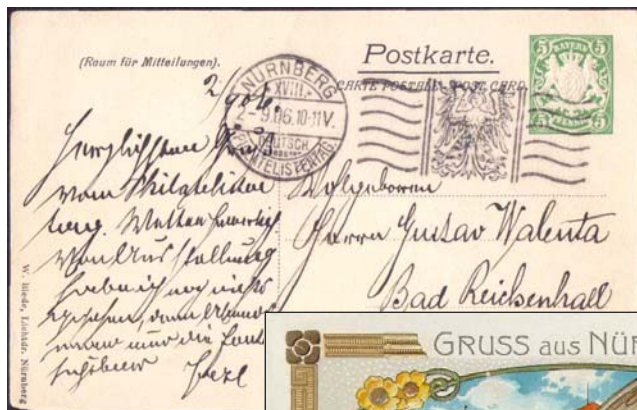 (Raum für Mitteilungen).
Postkarte.
CARTE POSTALE. POST CARD.
5 BAYERN 5
5 PFENNIG 5
NÜRNBERG
XVIII.
2. 9.06. 10-11V.
DEUTSCH.
PHILATELISTENTAG.
2/9 06.
Herzlichsten Gruß
vom Philatelisten
tag.
von Ausstellung
habe ich noch nichts
gesehen,
Wolgeboren
Herrn Gustav Walenta
Bad Reichenhall
W. Riede, Lichtdr. Nürnberg
GRUSS aus NÜR